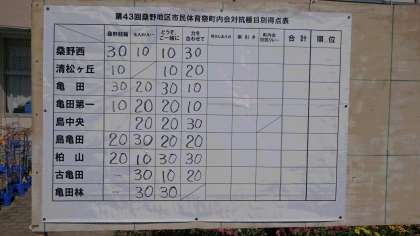 第43回桑野地区市民体育祭町内会対抗種目別得点表
どうぞ、ご一緒に 力を合わせて 合計 順位
桑野西 30 10 10 30
清松ヶ丘 10 10 20
亀田 30 20 30 10
亀田第一 10 20 20 10
島中央 20 20 30
島亀田 20 30 20 20
柏山 20 10 30 30
古亀田 - 30 10 20
亀田林 - 30 30